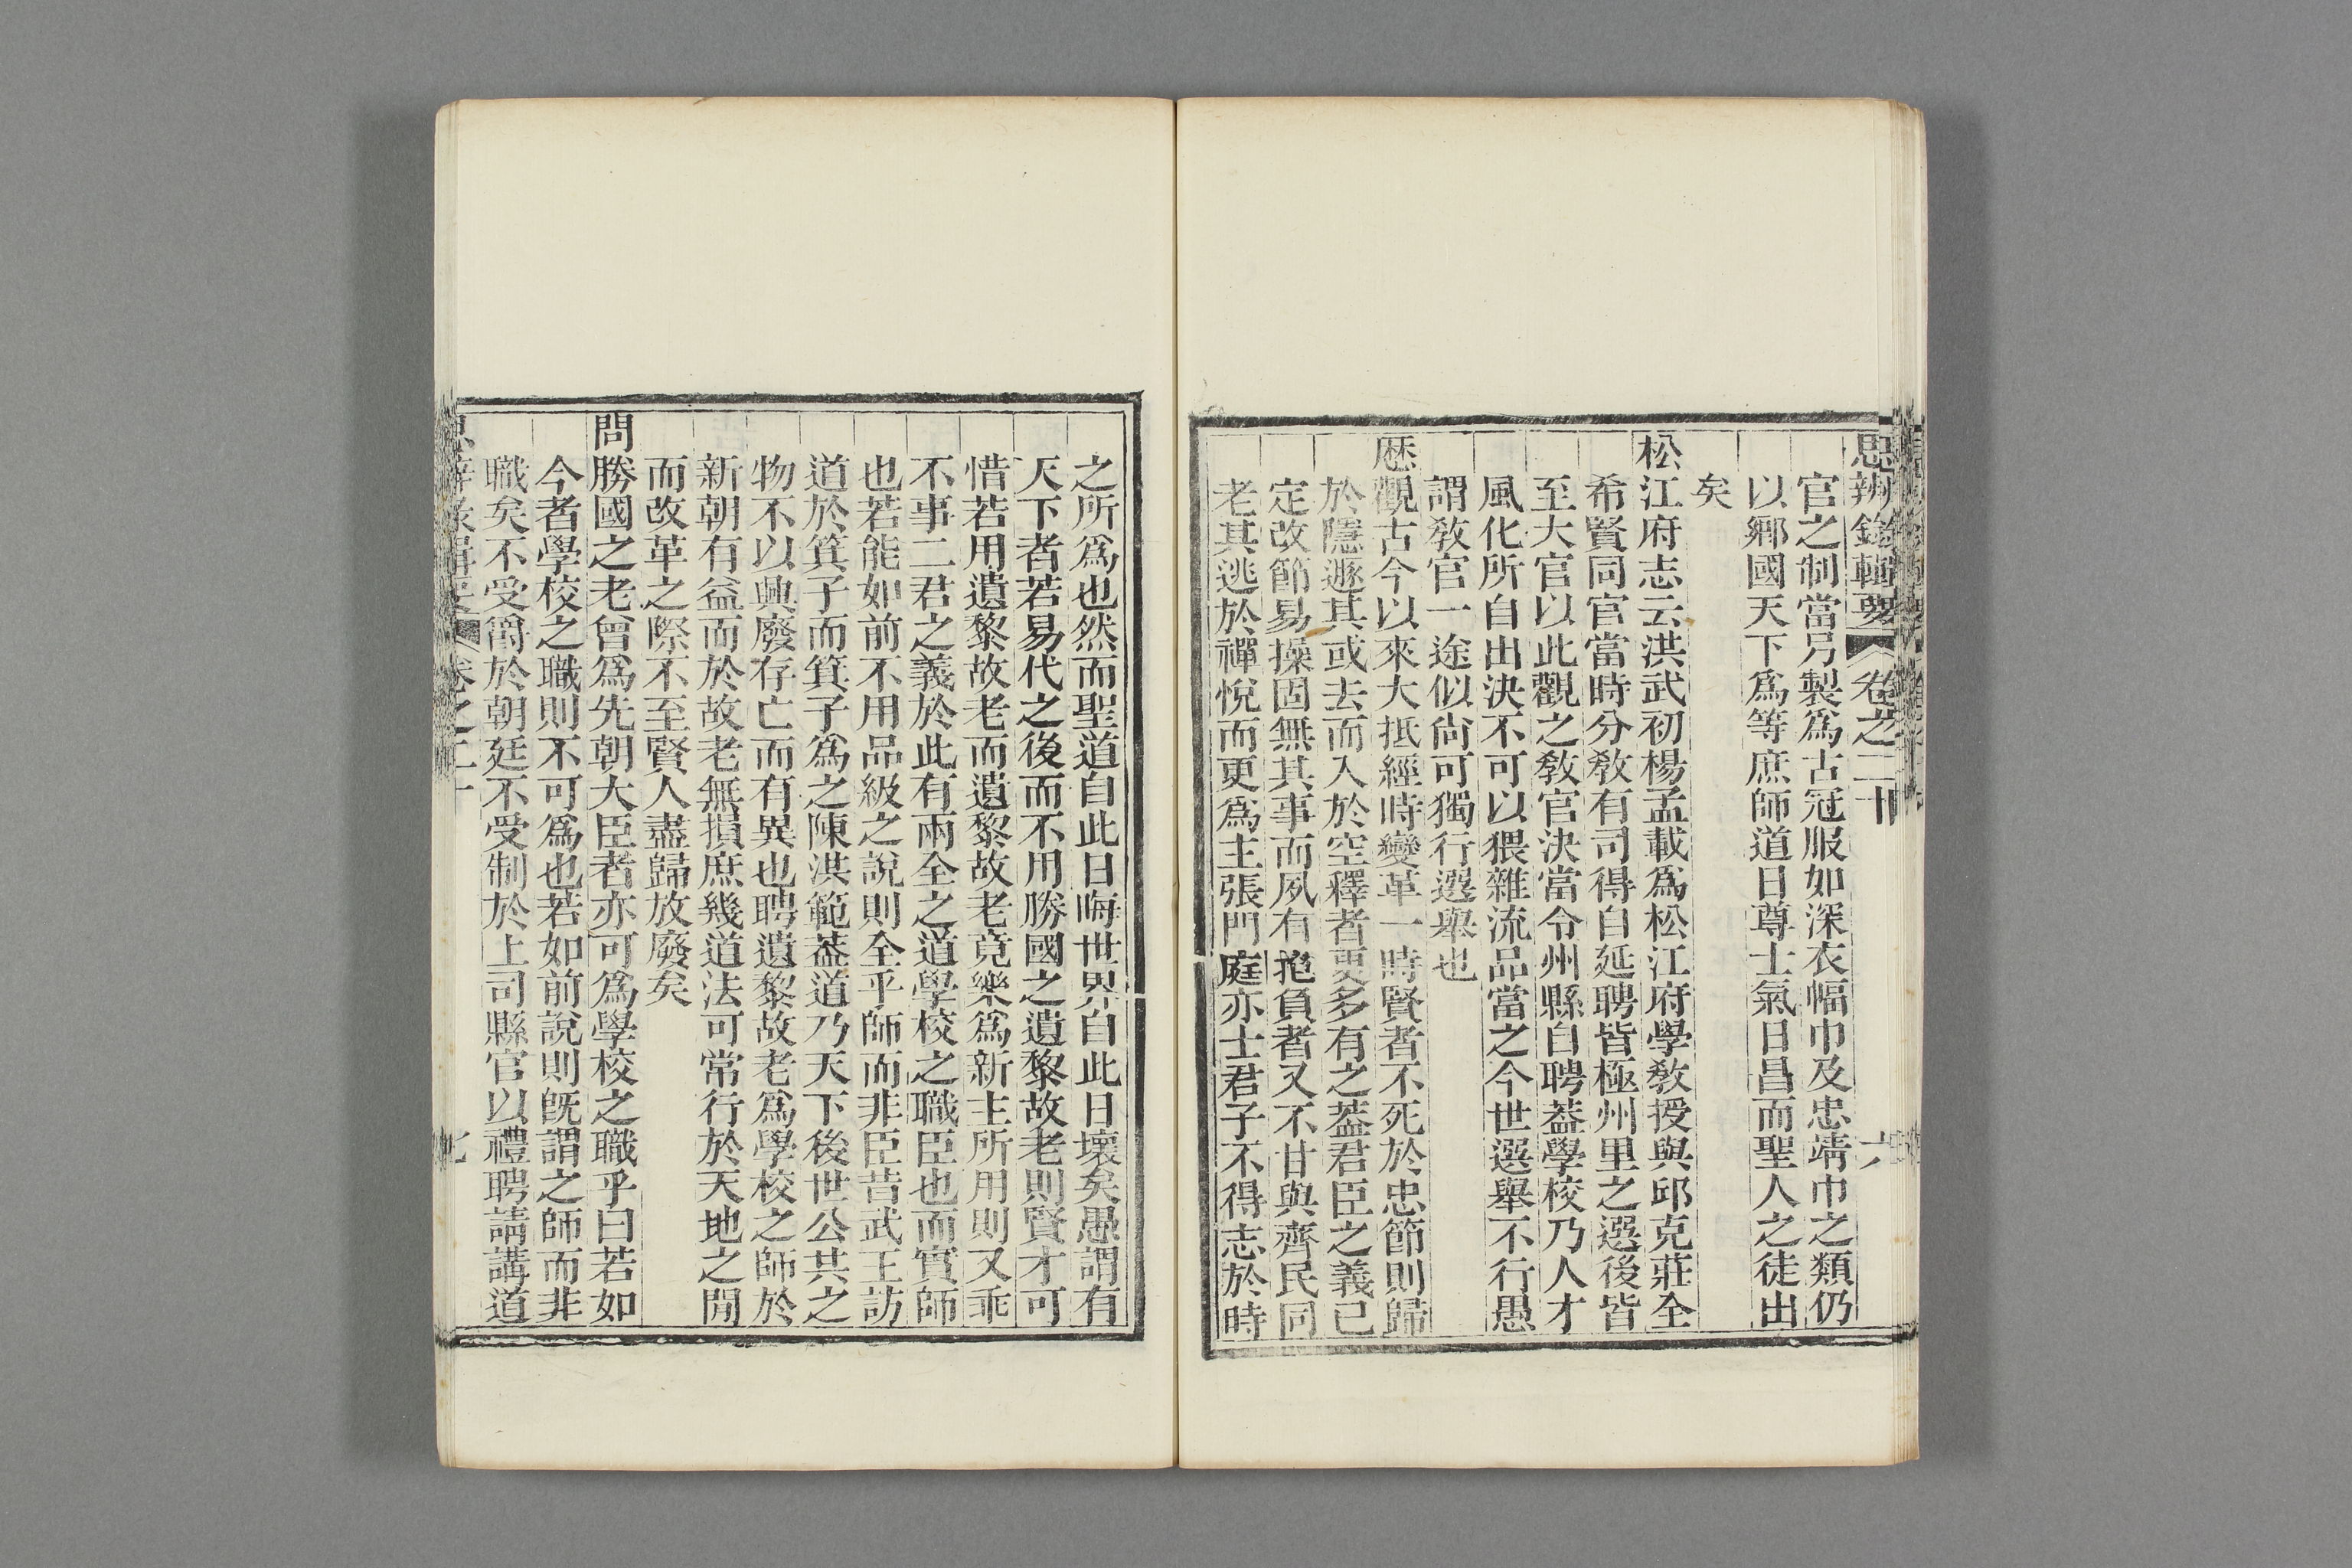 思辨錄輯要 卷之二十 六
官之制當另製爲古冠服如深衣幅巾及忠靖巾之類仍
以鄉國天下爲等庶師道日尊士氣日昌而聖人之徒出
矣
松江府志云洪武初楊孟載爲松江府學敎授與邱克莊全
希賢同官當時分敎有司得自延聘皆極州里之選後皆
至大官以此觀之敎官決當令州縣自聘葢學校乃人才
風化所自出決不可以猥雜流品當之今世選舉不行愚
謂敎官一途似尙可獨行選舉也
歷觀古今以來大抵經時變革一時賢者不死於忠節則歸
於隱遯其或去而入於空釋者更多有之葢君臣之義已
定改節易操固無其事而夙有抱負者又不甘與齊民同
老其逃於禪悅而更爲主張門庭亦士君子不得志於時
之所爲也然而聖道自此日晦世界自此日壞矣愚謂有
天下者若易代之後而不用勝國之遺黎故老則賢才可
惜若用遺黎故老而遺黎故老竟樂爲新主所用則又乖
不事二君之義於此有兩全之道學校之職臣也而實師
也若能如前不用品級之說則全乎師而非臣昔武王訪
道於箕子而箕子爲之陳洪範葢道乃天下後世公共之
物不以興廢存亡而有異也聘遺黎故老爲學校之師於
新朝有益而於故老無損庶幾道法可常行於天地之閒
而改革之際不至賢人盡歸放廢矣
問勝國之老曾爲先朝大臣者亦可爲學校之職乎曰若如
今者學校之職則不可爲也若如前說則旣謂之師而非
職矣不受爵於朝廷不受制於上司縣官以禮聘請講道